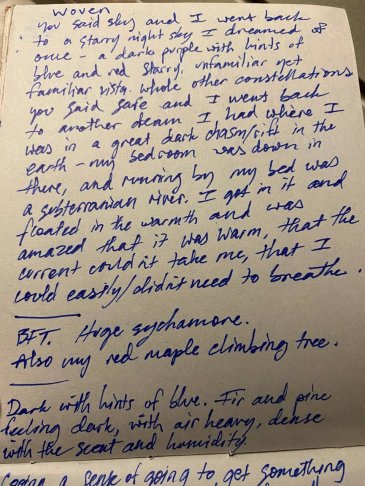 Woven
You said sky and I went back
to a starry night sky I dreamed of
once - a dark purple with hints of
blue and red starry, unfamiliar yet
familiar vista. Whole other constellations
you said safe and I went back
to another dream I had where I
was in a great dark chasm/rift in the
earth - my bedroom was down in
there, and running by my bed was
a subterranian river. I got in it and
floated in the warmth and was
amazed that it was warm, that the
current couldn't take me, that I
could easily/didn't need to breathe.
BFT. Huge sychamore.
Also my red maple climbing tree.
Dark with hints of blue. Fir and pine
feeling dark, with air heavy, dense
with the scent and humidity.
a sense of going to get something